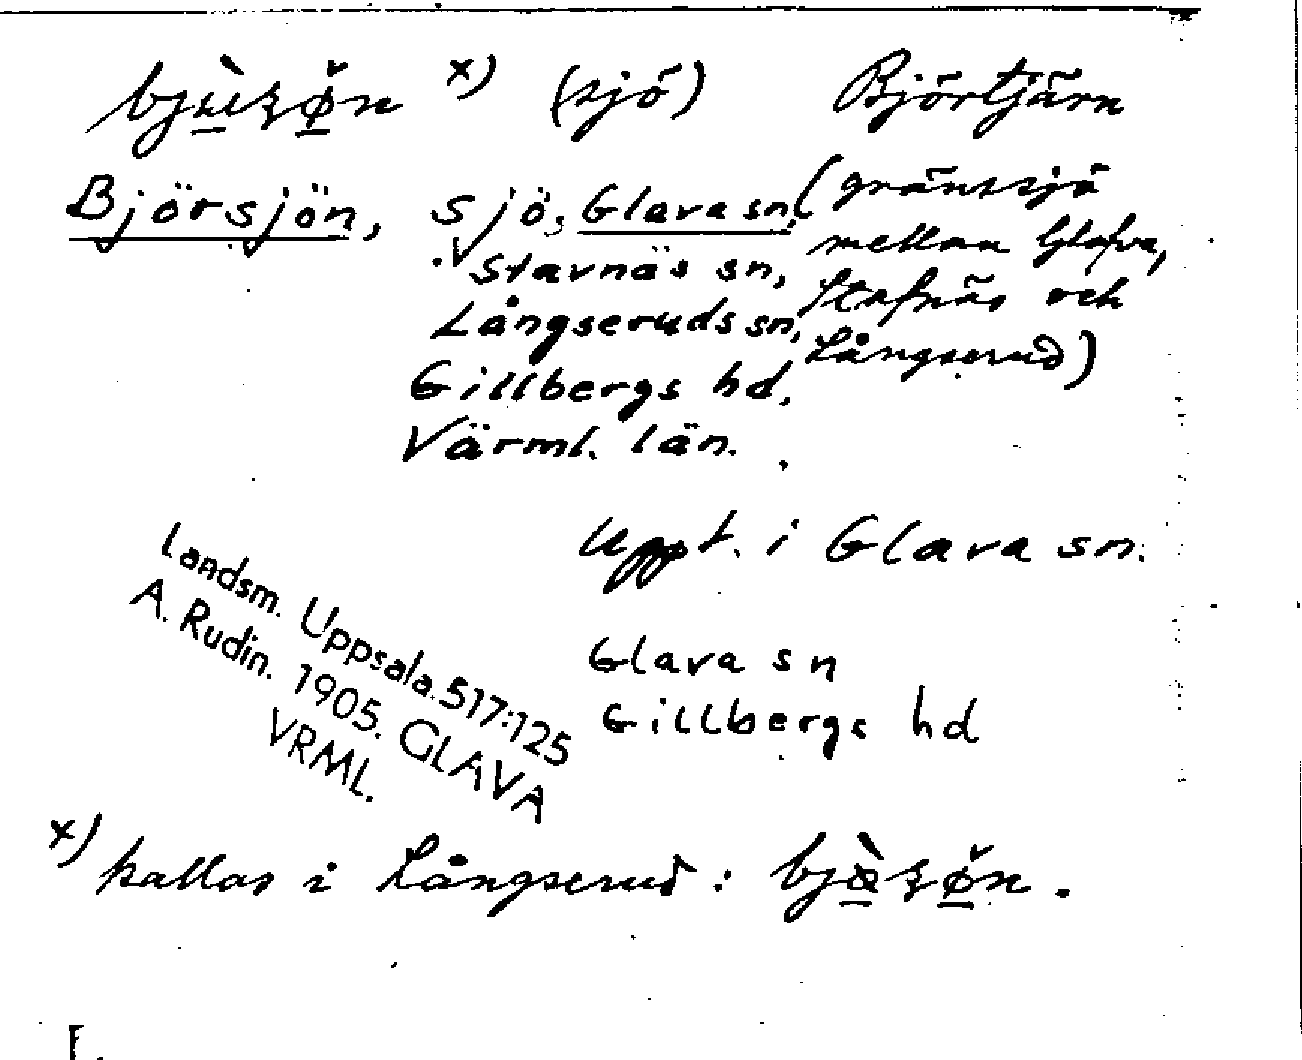 (sjö) Björtjärn
Björsjön, sjö, Glava sn, (gränssjö
Stavnäs sn, mellan Glafva,
Långseruds sn, Stafnäs och
Gillbergs hd, Långserud)
Värml. län.
Uppt. i Glava sn.
Landsm. Uppsala 517:125
A. Rudin. 1905. GLAVA
VRML.
Glava sn
Gillbergs hd
x) kallas i Långserud: